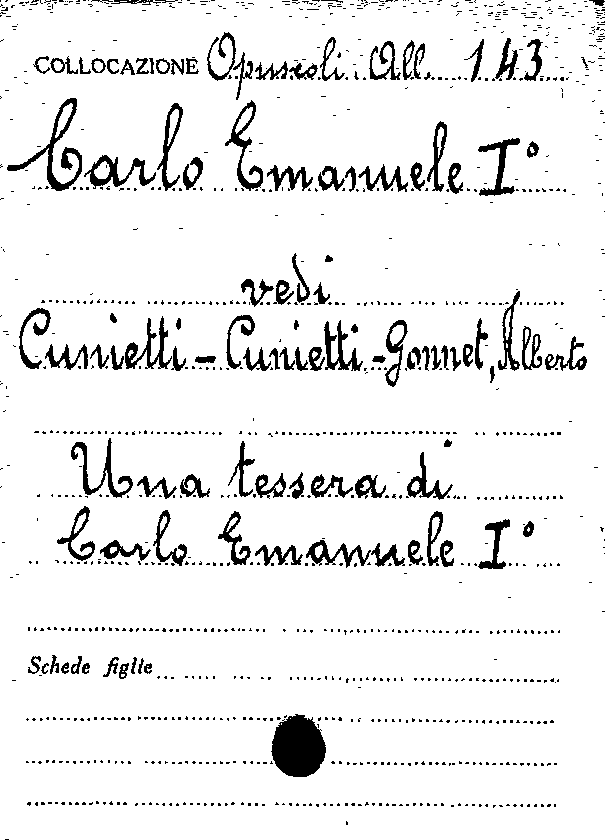 COLLOCAZIONE Opuscoli. All. 143
Carlo Emanuele I°
vedi
Cunietti-Cunietti-Gonnet, Alberto
Una tessera di
Carlo Emanuele I°
Schede figlie